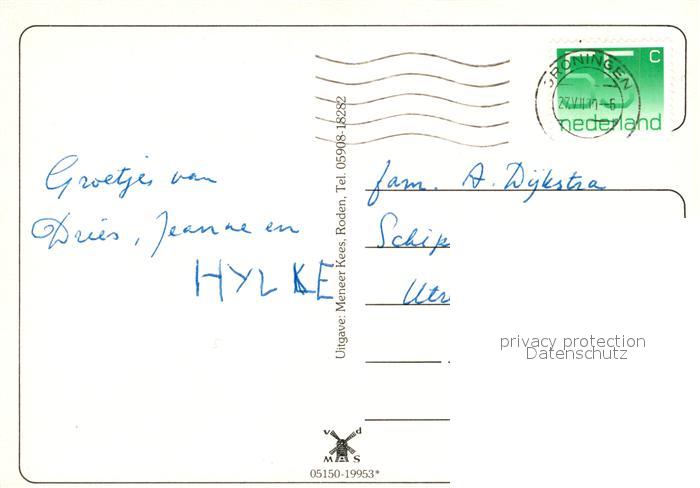 GRONINGEN
C
nederland
Uitgave: Meneer Kees, Roden, Tel. 05908-18282
Groetjes van
Dries, Jeanne en
HYLKE
fam. A. Dijkstra
Schip
Utr
privacy protection
Datenschutz
v d
MAS
05150-19953*